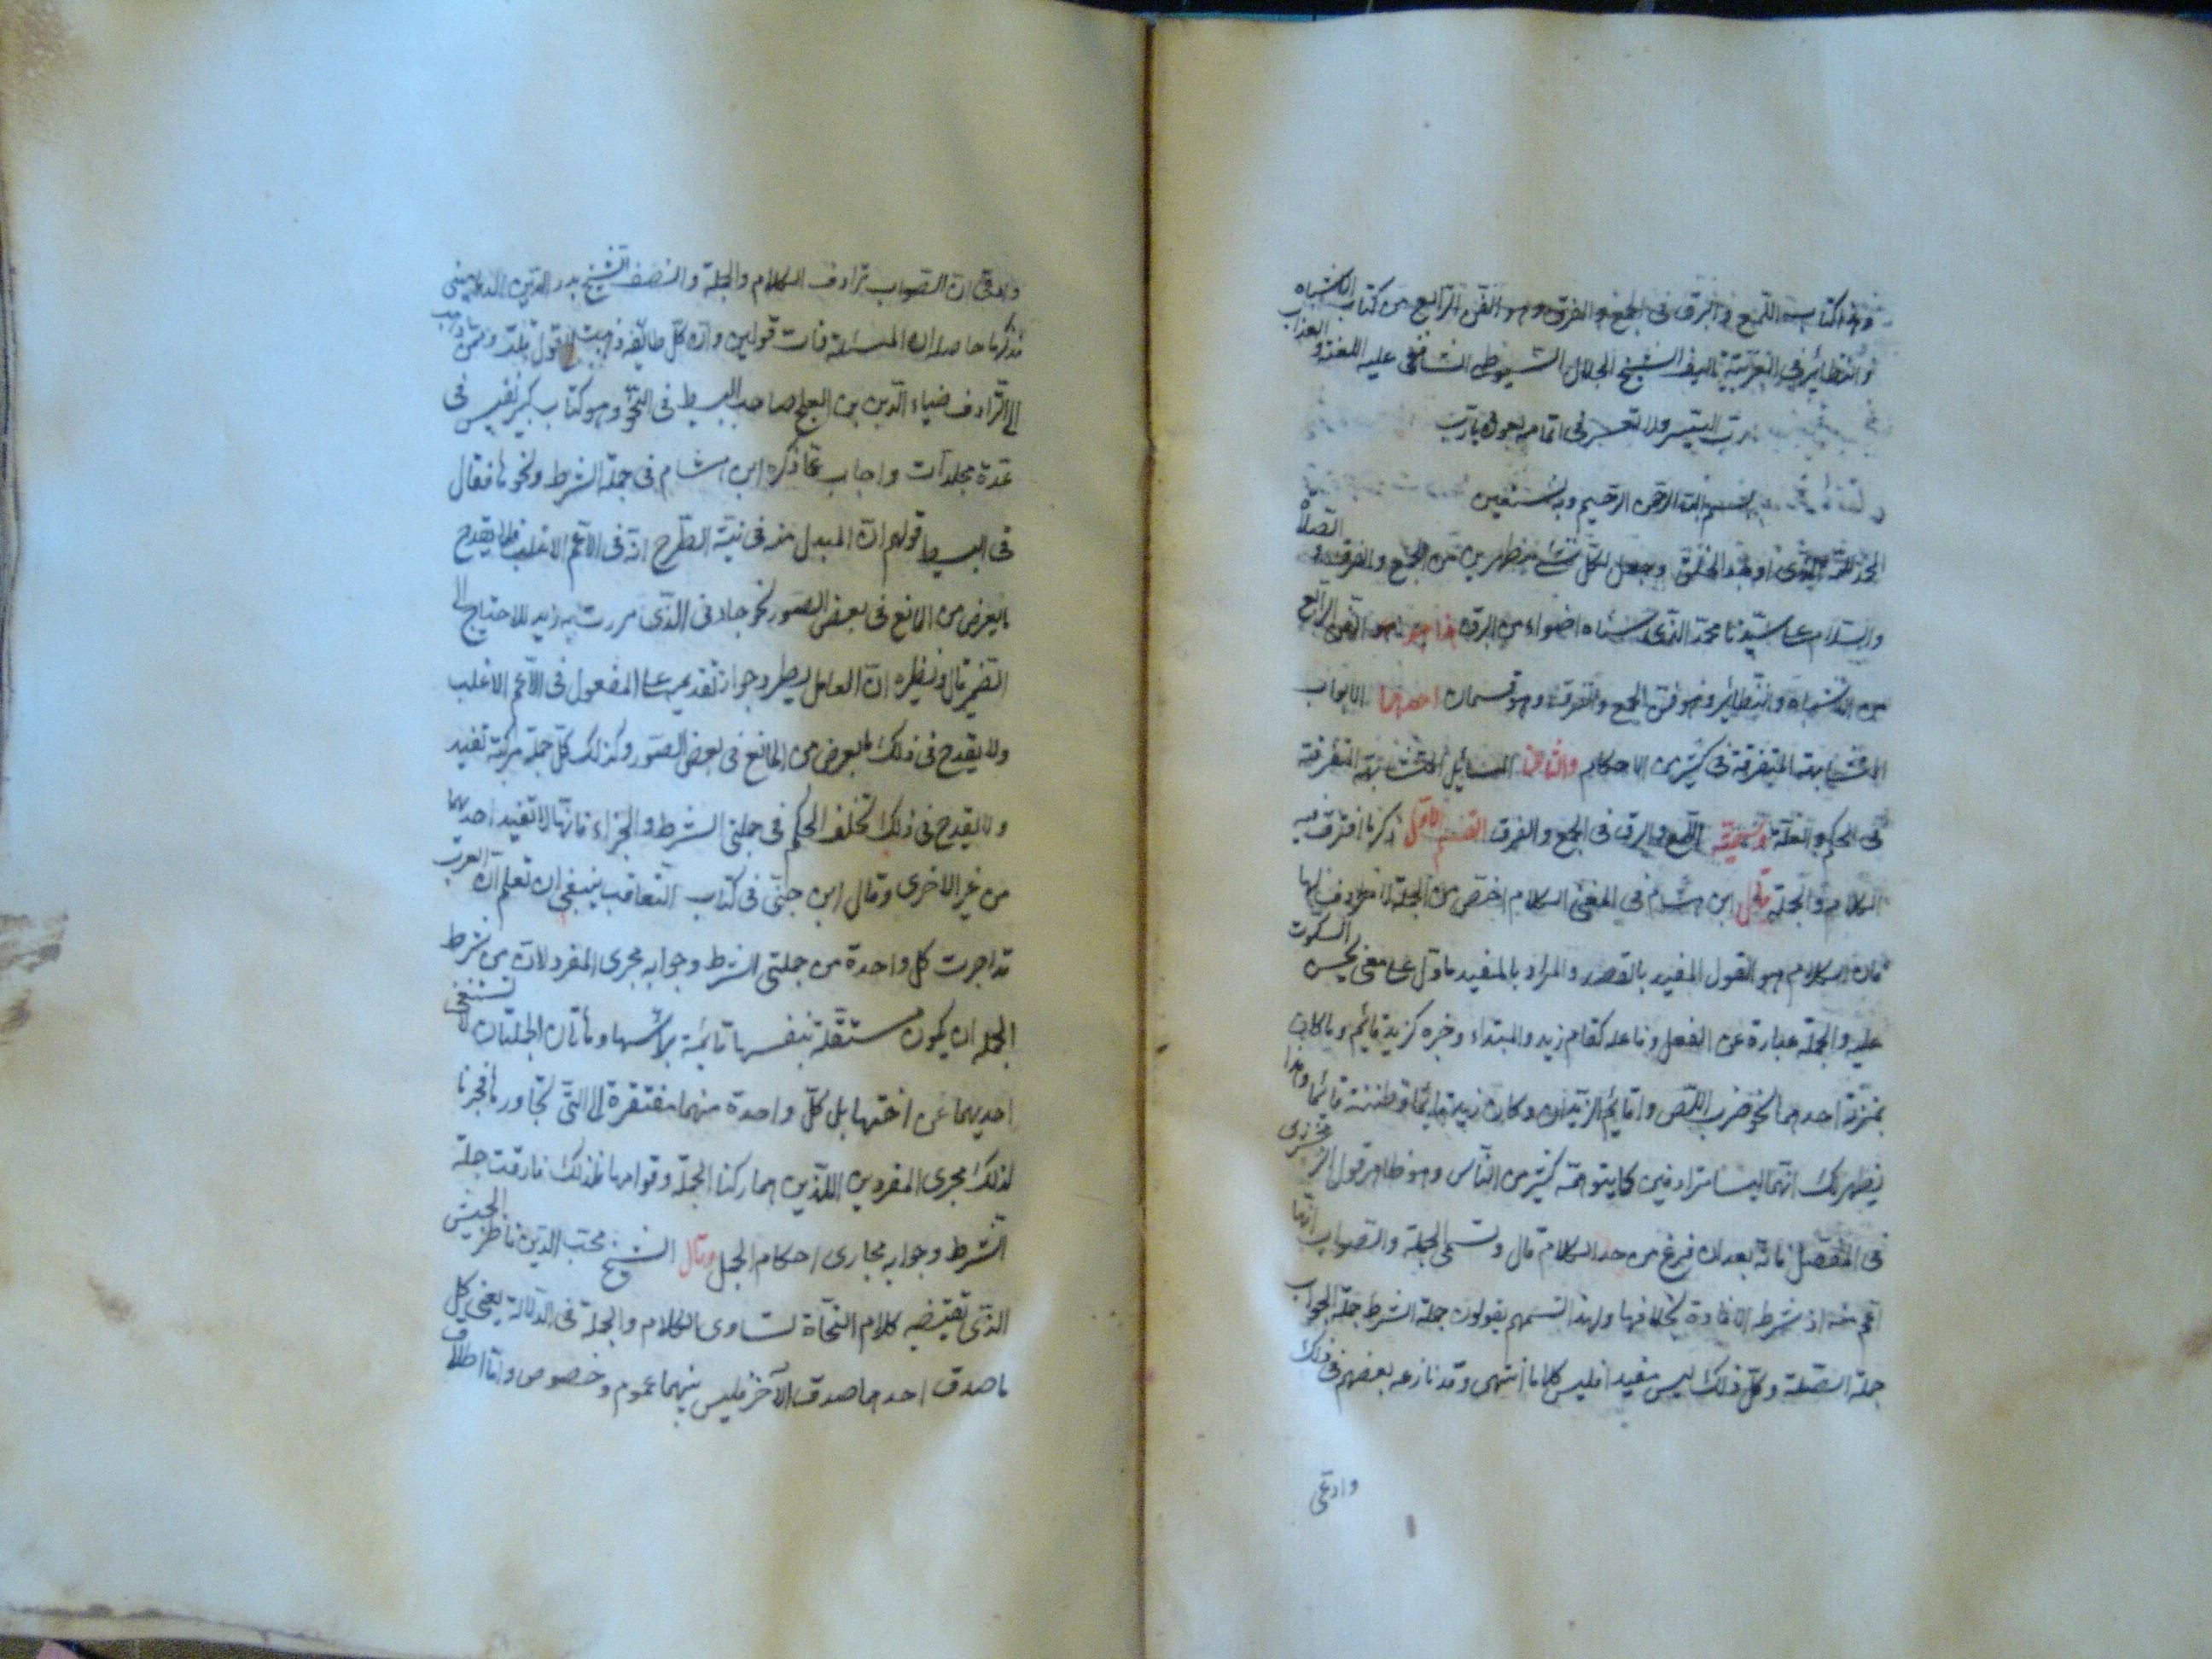 وهذا كتاب اللمع والبرق فى الجمع والفرق وهو الفن الرابع من كتاب الاشباه
والنظائر فى العربية تاليف الشيخ الجلال السيوطى الشافعى عليه اللعنة والعذاب
رب اليسر ولا تعسر فى اتمامه بعونك يا رب
بسم الله الرحمن الرحيم وبه نستعين
الحمد لله الذى اوجد الخلق وجعل لكل شئ مظهرين من الجمع والفرق والصلاة
والسلام على سيدنا محمد الذى سناه اضواء من البرق هذا هو الفن الرابع
من الاشباه والنظائر وهو فن الجمع والفرق وهو قسمان احدهما الابواب
المتشابهة المتفرقة فى كثير من الاحكام والثانى المسائل المتشابهة المتفرقة
فى الحكم والعلة وسميته اللمع والبرق فى الجمع والفرق القسم الاول ذكر ما افترق فيه
الكلام والجملة قال ابن هشام فى المغنى الكلام اخص من الجملة لا مرادف لها
فان الكلام هو القول المفيد بالقصد والمراد بالمفيد ما دل على معنى يحسن السكوت
عليه والجملة عبارة عن الفعل وفاعله كقام زيد والمبتداء وخبره كزيد قائم وما كان
بمنزلة احدهما نحو ضرب اللص واقائم الزيدان وكان زيد قائما وظننته قائما وهذا
يظهر لك انهما ليسا مترادفين كما يتوهمه كثير من الناس وهو ظاهر قول الزمخشرى
فى المفصل فانه بعد ان فرغ من حد الكلام قال وتسمى الجملة والصواب انها
اعم منه اذ شرطه الافادة بخلافها ولهذا تسمعهم يقولون جملة الشرط جملة الجواب
جملة الصلة وكل ذلك ليس مفيدا فليس كلاما انتهى وقد نازعه بعضهم فى ذلك
وادعى
وادعى ان الصواب ترادف الكلام والجملة وانصف الشيخ بدر الدين الدمامينى
فذكر ما حاصله ان المسئلة ذات قولين وان كل طائفة ذهبت لقول قلت وممن ذهب
الى الترادف ضياء الدين بن العلج صاحب البسيط فى النحو وهو كتاب كبير نفيس فى
عدة مجلدات واجاب عما ذكره ابن هشام فى جملة الشرط ونحوها فقال
فى البسيط قولهم ان المبدل منه فى نية الطرح انه فى الاعم الاغلب فلا يقدح
ما يعرض من المانع فى بعض الصور نحو جاءنى الذى مررت به زيد للاحتياج الى
الضمير قال ونظيره ان الفاعل يطرد جواز تقديمه على المفعول فى الاعم الاغلب
ولا يقدح فى ذلك ما يعرض من المانع فى بعض الصور وكذلك كل جملة مركبة تفيد
ولا يقدح فى ذلك تخلف الحكم فى جملتى الشرط والجزاء فانها لا تفيد احديهما
من غير الاخرى وقال ابن جنى فى كتاب التعاقب ينبغى ان تعلم ان العرب
قد اجرت كل واحدة من جملتى الشرط وجوابه مجرى المفرد لان من شرط
الجملة ان يكون مستقلة بنفسها قائمة براسها وهاتان الجملتان لا تستغنى
احديهما عن اختها بل كل واحدة منهما مفتقرة الى التى تجاورها فجرتا
لذلك مجرى المفردين اللذين هما ركنا الجملة وقوامها فلذلك فارقت جملة
الشرط وجوابه مجارى احكام الجمل وقال الشيخ محب الدين ناظر الجيش
الذى تقتضيه كلام النحاة تساوى الكلام والجملة فى الدلالة يعنى كل
ما صدق احدهما صدق الآخر فليس بينهما عموم وخصوص واما اطلاق